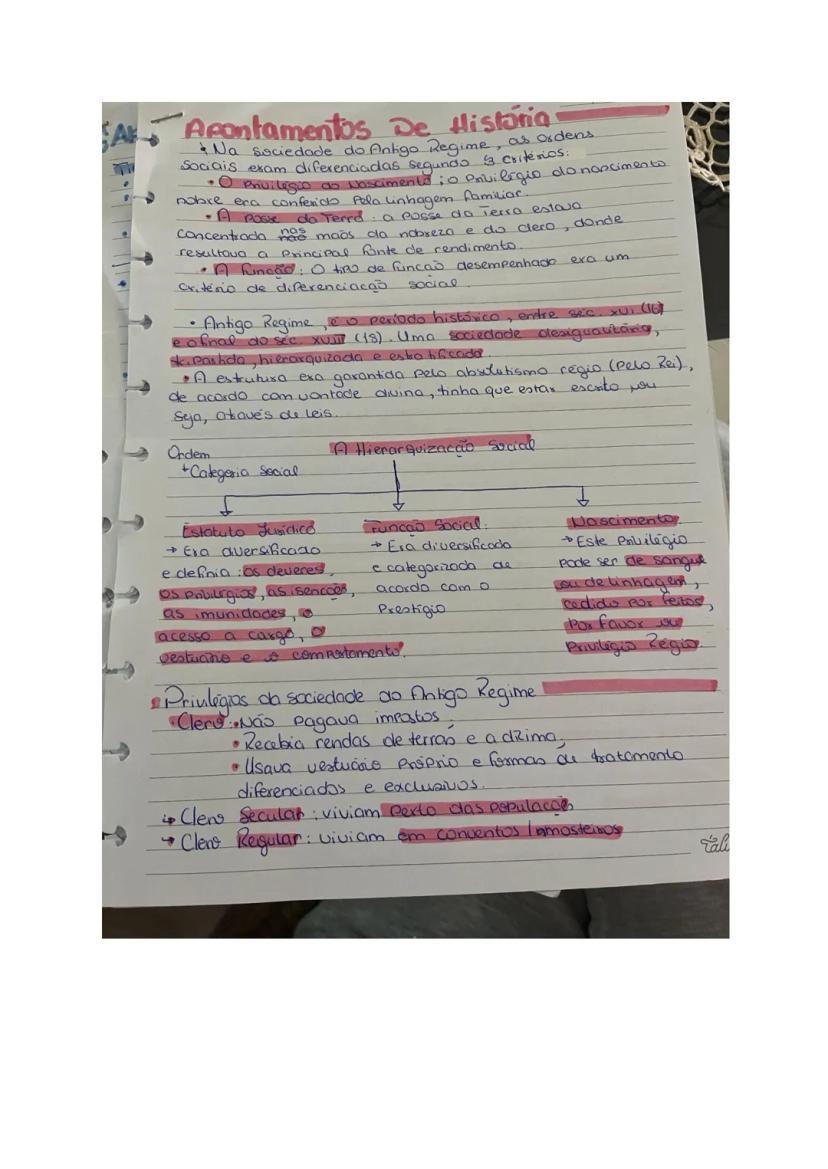 Apontamentos De História
• Na sociedade do Antigo Regime, as ordens
sociais eram diferenciadas segundo 3 critérios:
• O Privilégio do Nascimento: o Privilégio do nascimento
nobre era conferido pela linhagem familiar.
• A Posse da Terra: a posse da terra estava
concentrada nas mãos da nobreza e do clero, donde
resultava a principal fonte de rendimento.
• A função: O tipo de função desempenhado era um
critério de diferenciação social.
• Antigo Regime, é o período histórico, entre séc. XVI (16)
e o final do séc. XVIII (18). Uma sociedade desigualitária,
partida, hierarquizada e estratificada.
• A estrutura era garantida pelo absolutismo régio (pelo Rei),
de acordo com vontade divina, tinha que estar escrito, ou
seja, através de leis.
Ordem
Categoria Social
A Hierarquização Social
Estatuto Jurídico
→ Era diversificado
e definia: os deveres,
os privilégios, as isenções,
as imunidades, o
acesso a cargo, o
vestuário e o comportamento.
Função Social:
→ Era diversificada
e categorizada de
acordo com o
Prestígio
Nascimento
→ Este Privilégio
pode ser de sangue
ou de linhagem,
cedido por feitos,
por favor ou
Privilégio Régio.
Privilégios da sociedade do Antigo Regime
Clero: • Não pagava impostos;
• Recebia rendas de terras e a dízima;
• Usava vestuário próprio e formas de tratamento
diferenciados e exclusivos.
↳ Clero Secular: viviam perto das populaçõe
→ Clero Regular: viviam em conventos / mosteiros